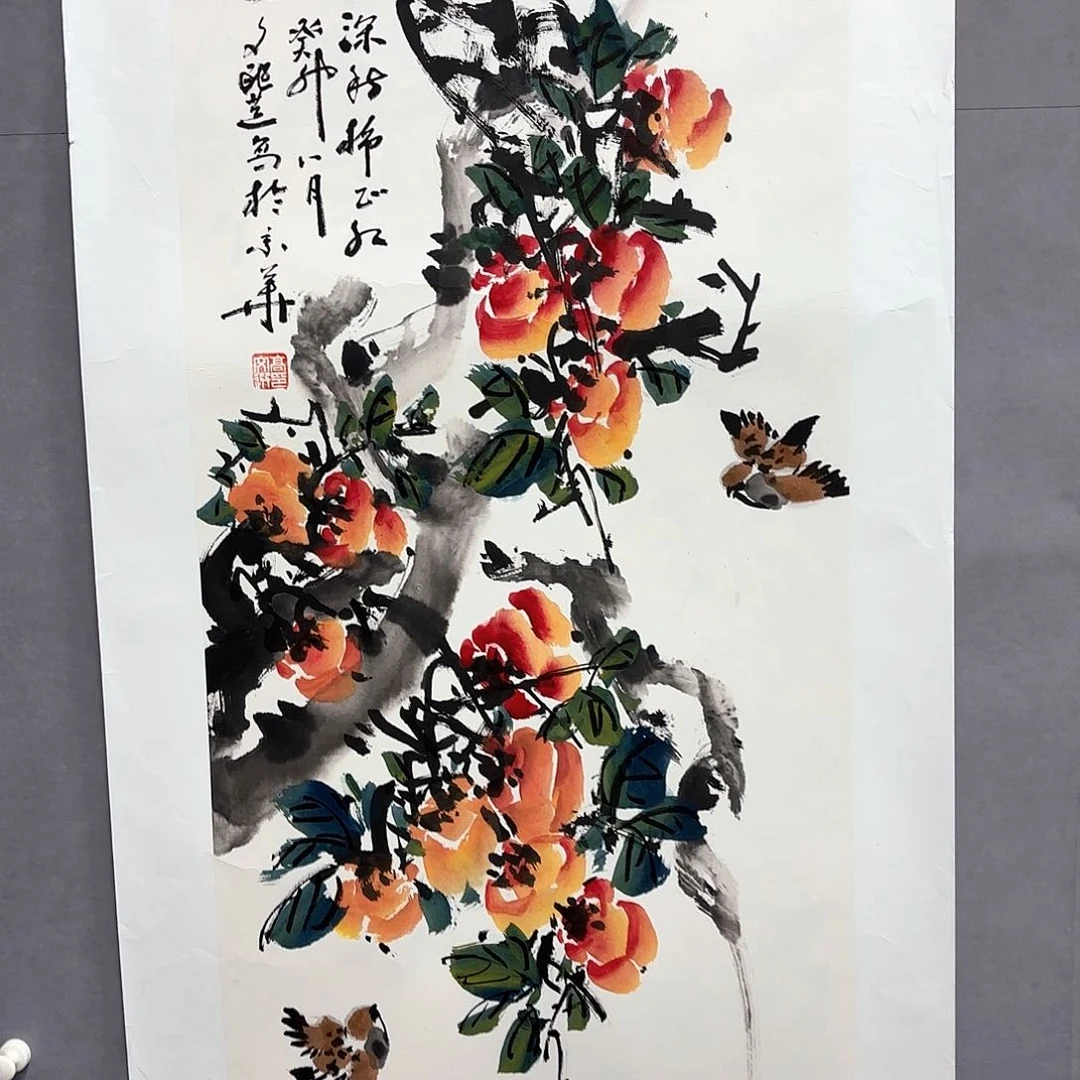 深秋柿正红
癸卯八月
写于京华